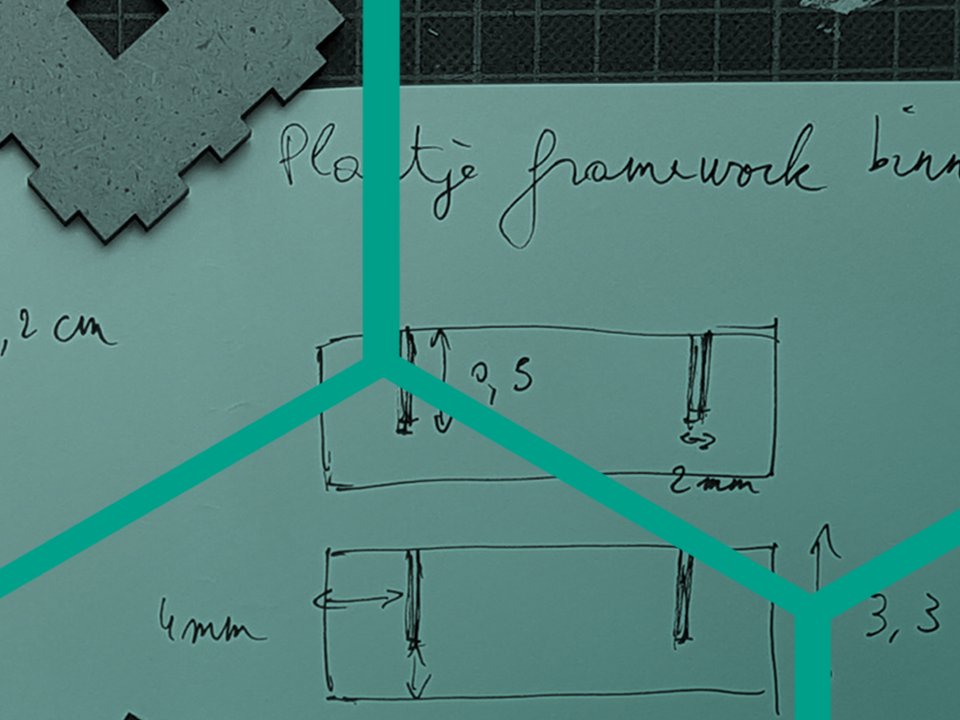 Plaatje framework binn
,2 cm
0,5
2 mm
4mm
3,3